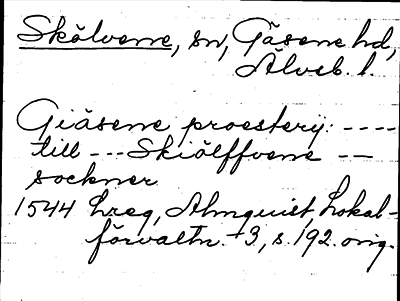 Skölvene, sn, Gäsene hd,
Älvsb. l.
Giäsene proestery: ----
till --- Skiölffvene --
sockner
1544 Lreg, Almquist, Lokal-
förvaltn. +3, s. 192. orig.